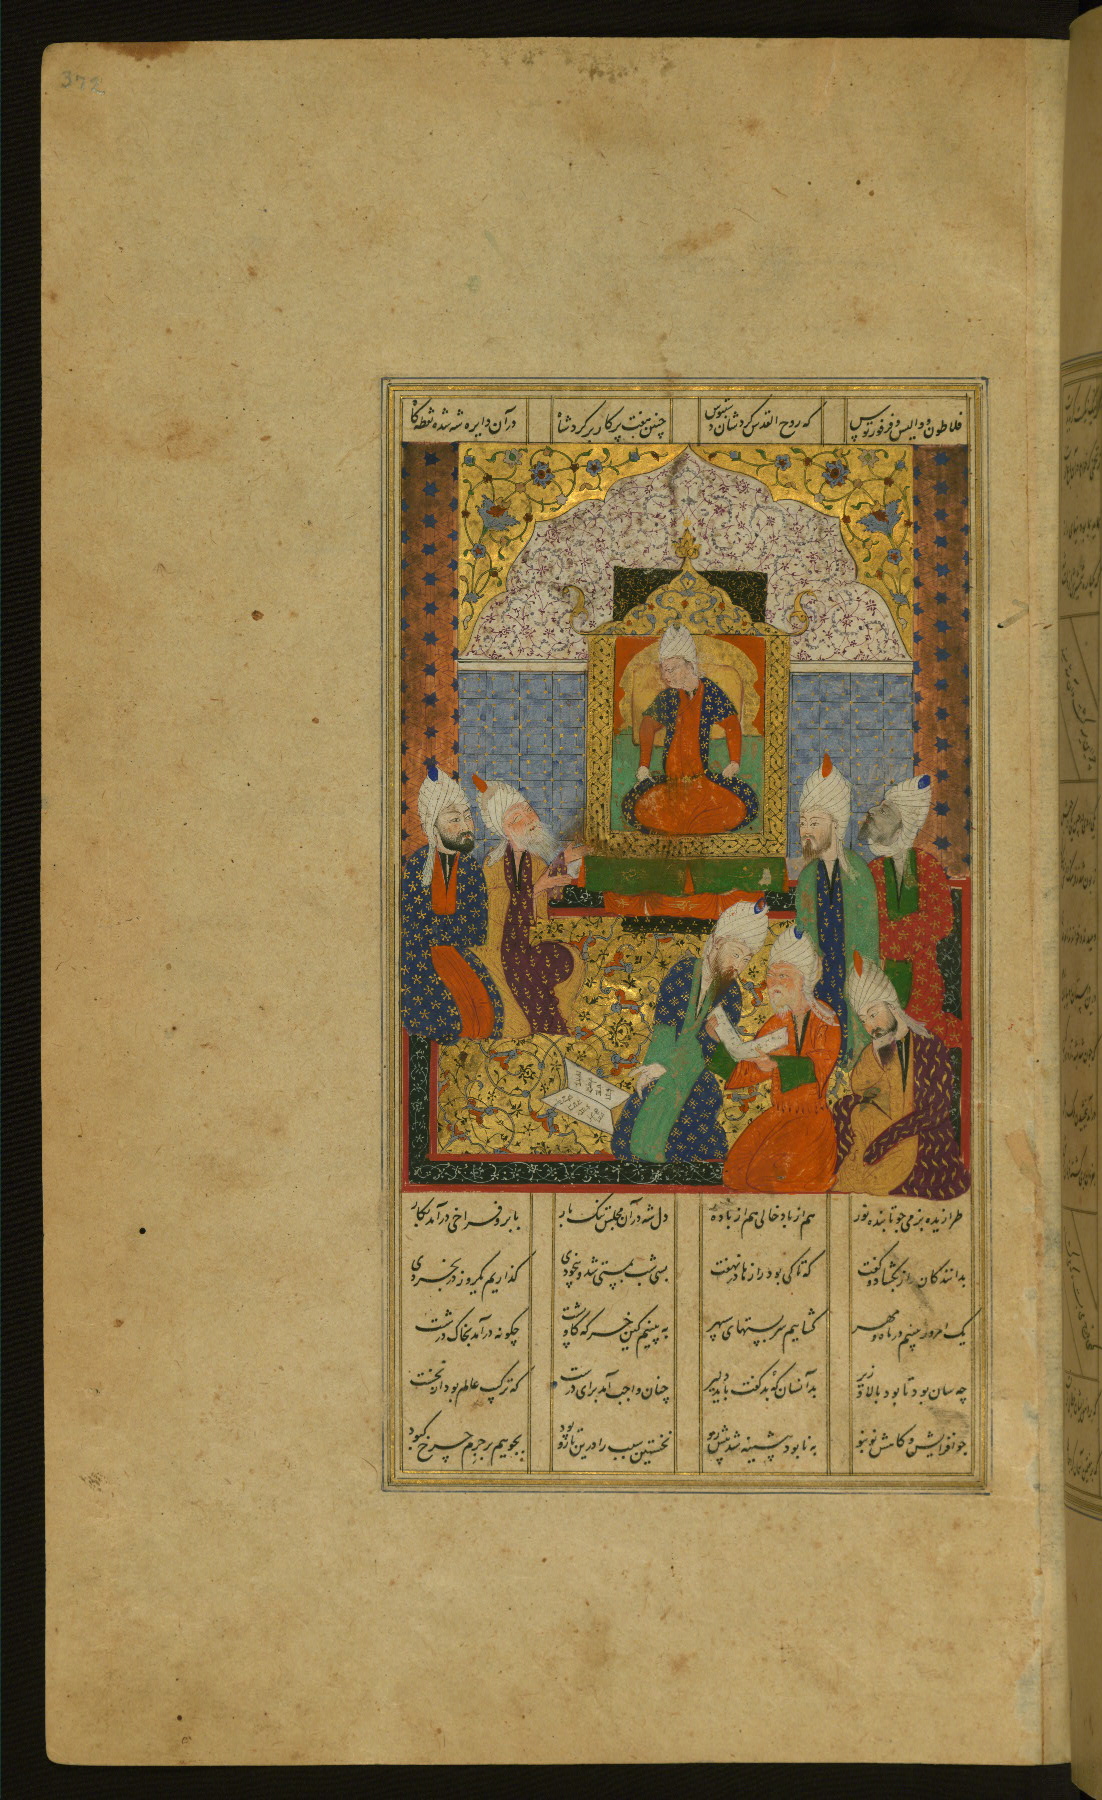 372
فلاطون و والیس و فرفوریوس که روح القدس کردشان دستبوس چنین هفت پرکار بر کرد شاه در آن دایره شه شده نقطه کاه
طرازیده بزمی چو تابنده نور هم از باد خالی هم از باده دل شه در آن مجلس تنک بار بابرو فراخی درآمد بکار
بدانندکان راز بکشاد و کفت که تا کی بود راز ما در نهفت بسی شب بمستی شد و بیخودی کذاریم یکروز در بخردی
یک امروز بینیم در ماه و مهر کشاییم سربستهای سپهر به بینیم کین خرکه کاو پشت چکونه درآمد بخاک درشت
چه سان بود تا بود بالا و زیر بدآنسان که بد کفت باید دلیر چنان واجب آمد برای درست که ترکیب عالم بود از نخست
چو افزایش و کاهش نو بنو به نابود پیشینه شد پیش رو نخستین سبب را درین تار و پود بجوییم بر جرم چرخ کبود